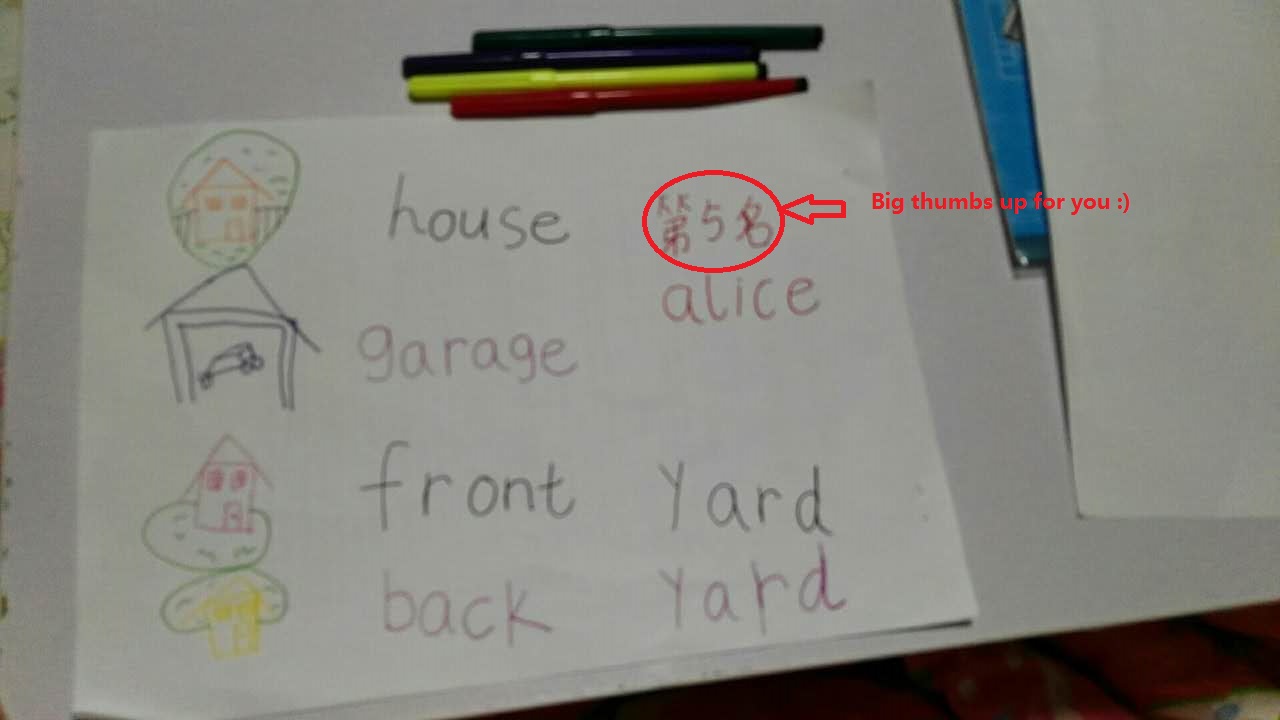 house 第5名
Big thumbs up for you :)
alice
garage
front Yard
back Yard